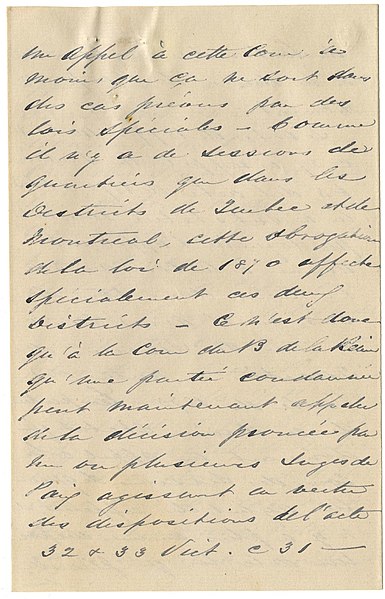 un appel à cette Cour, à
moins que ça ne soit dans
des cas prévus par des
lois spéciales – Comme
il n'y a de sessions de
quartiers que dans les
Districts de Quebec et de
Montreal, cette abrogation
de la loi de 1870 affecte
spécialement ces deux
Districts – Ce n'est donc
qu'à la Cour du B de la Reine
qu'une partie condamnée
peut maintenant appeler
de la décision prononcée par
un ou plusieurs Juges de
Paix agissant en vertu
des dispositions de l'acte
32 & 33 Vict. c 31 —